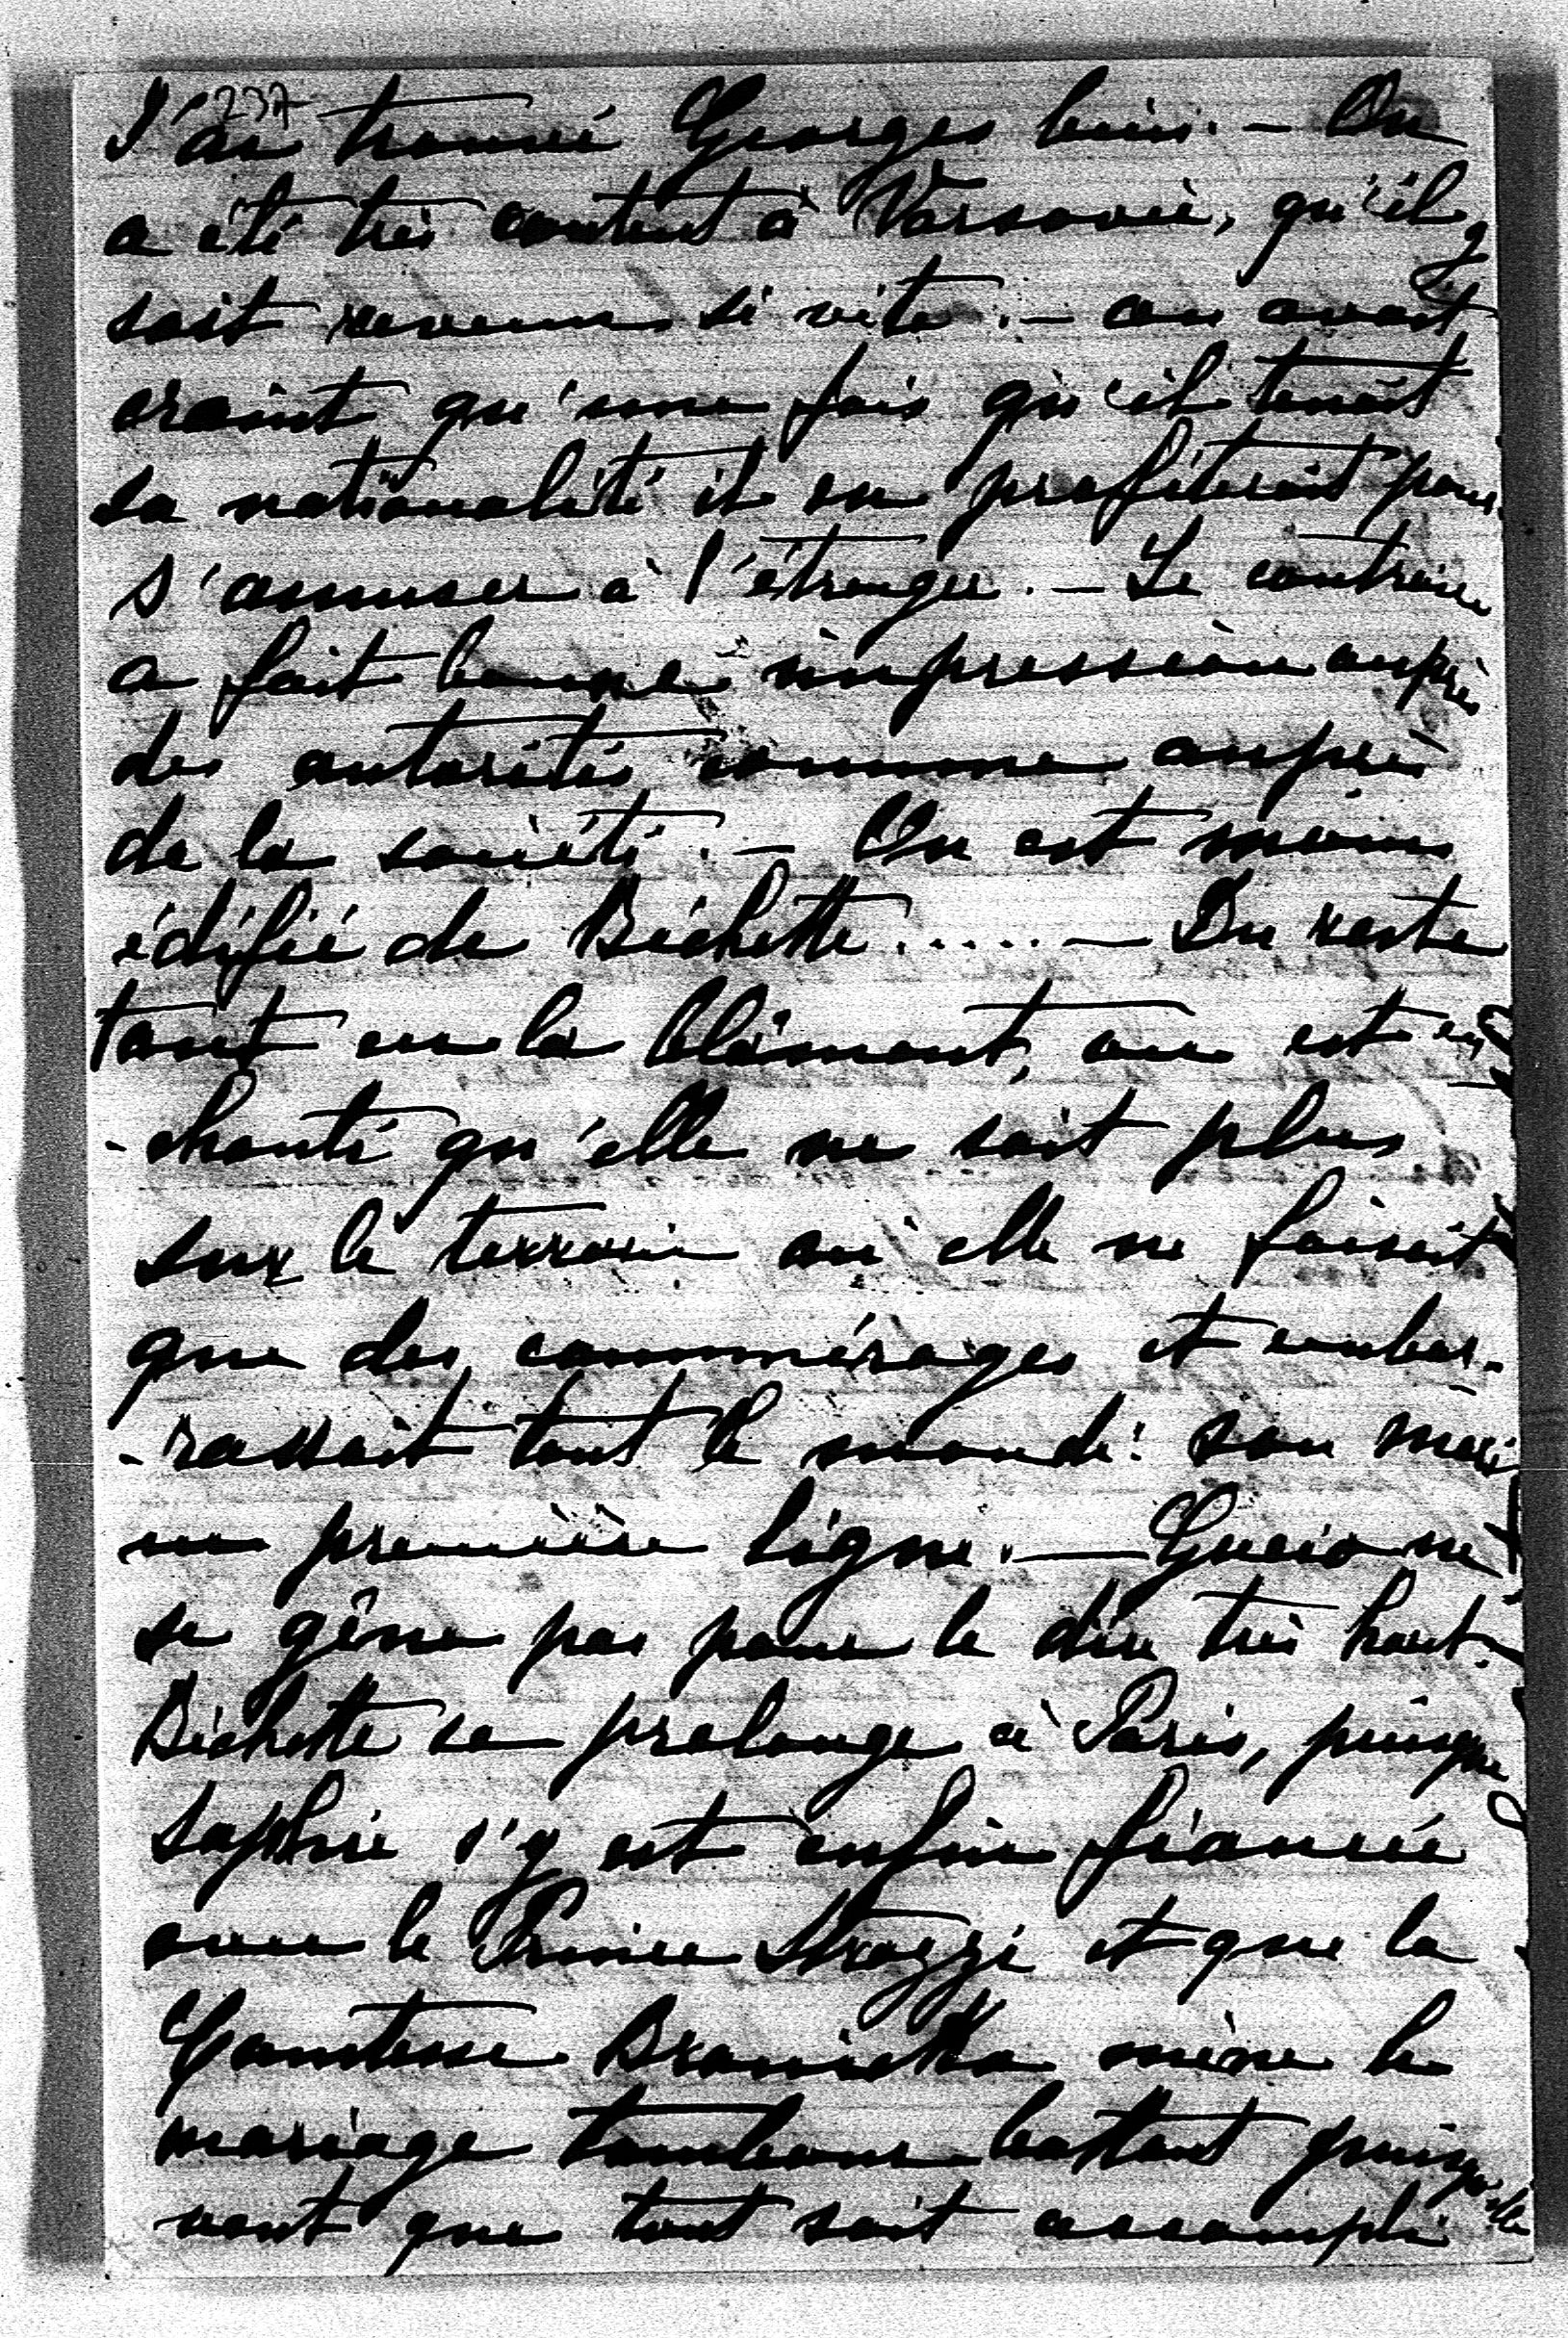 237
J'ai trouvé Georges bien. — On
a été très content à Varsovie, qu'il y
soit revenu si vite. — on avait
craint qu'une fois qu'il tenait
sa nationalité il en profiterait pour
s'amuser à l'étranger. — Le contraire
a fait bonne impression auprès
des autorités comme auprès
de la société. — On est moins
édifié de Bichette ...... — Du reste
tout en la blâmant, on est en
-chanté qu'elle ne soit plus
sur le terrain où elle ne faisait
que des commérages et embar-
-rassait tout le monde: son mari
en première ligne. — Gucio ne
se gêne pas pour le dire très haut.
Bichette se prolonge à Paris, puisque
Sophie s'y est enfin fiancée
avec le Prince Strozzi et que la
Comtesse Branicka mène le
mariage tambour battant puisqu'elle
veut que tout soit accompli